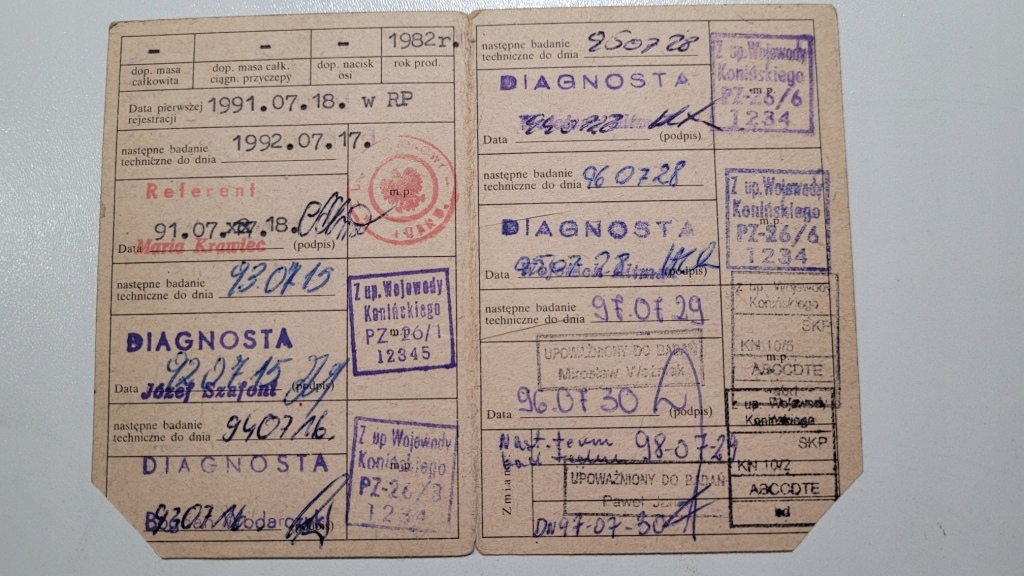 - - - 1982r.
dop. masa całkowita dop. masa całk. ciągn. przyczepy dop. nacisk osi rok prod.
Data pierwszej rejestracji 1991.07.18. w RP
następne badanie techniczne do dnia 1992.07.17.
Referent
m.p.
91.07. 18.
Data Maria Krawiec (podpis)
następne badanie techniczne do dnia 93.07.15
Z up. Wojewody
Konińskiego
PZ-26/1
m.p.
12345
DIAGNOSTA
Data 92.07.15 (podpis)
Józef Szafoni
następne badanie techniczne do dnia 94.07.16.
Z up Wojewody
Konińskiego
m.p.
PZ-26/3
1234
DIAGNOSTA
93.07.16
następne badanie techniczne do dnia 95.07.28
Z up. Wojewody
Konińskiego
m.p.
PZ-26/6
1234
DIAGNOSTA
Data 94.07.28 (podpis)
następne badanie techniczne do dnia 96.07.28
Z up. Wojewody
Konińskiego
m.p.
PZ-26/6
1234
DIAGNOSTA
Data 95.07.28 (podpis)
następne badanie techniczne do dnia 97.07.29
Z up. Wojewody
Konińskiego
SKP
KN 10/5
m.p.
ABCCDTE
UPOWAŻNIONY DO BADAŃ
Mirosław Woźniak
Data 96.07.30 (podpis)
Z up Wojewody
Konińskiego
SKP
KN 10/2
ABCCDTE
Zmiany
Nast. term 98-07-29
UPOWAŻNIONY DO BADAŃ
Paweł
Dn 97-07-30